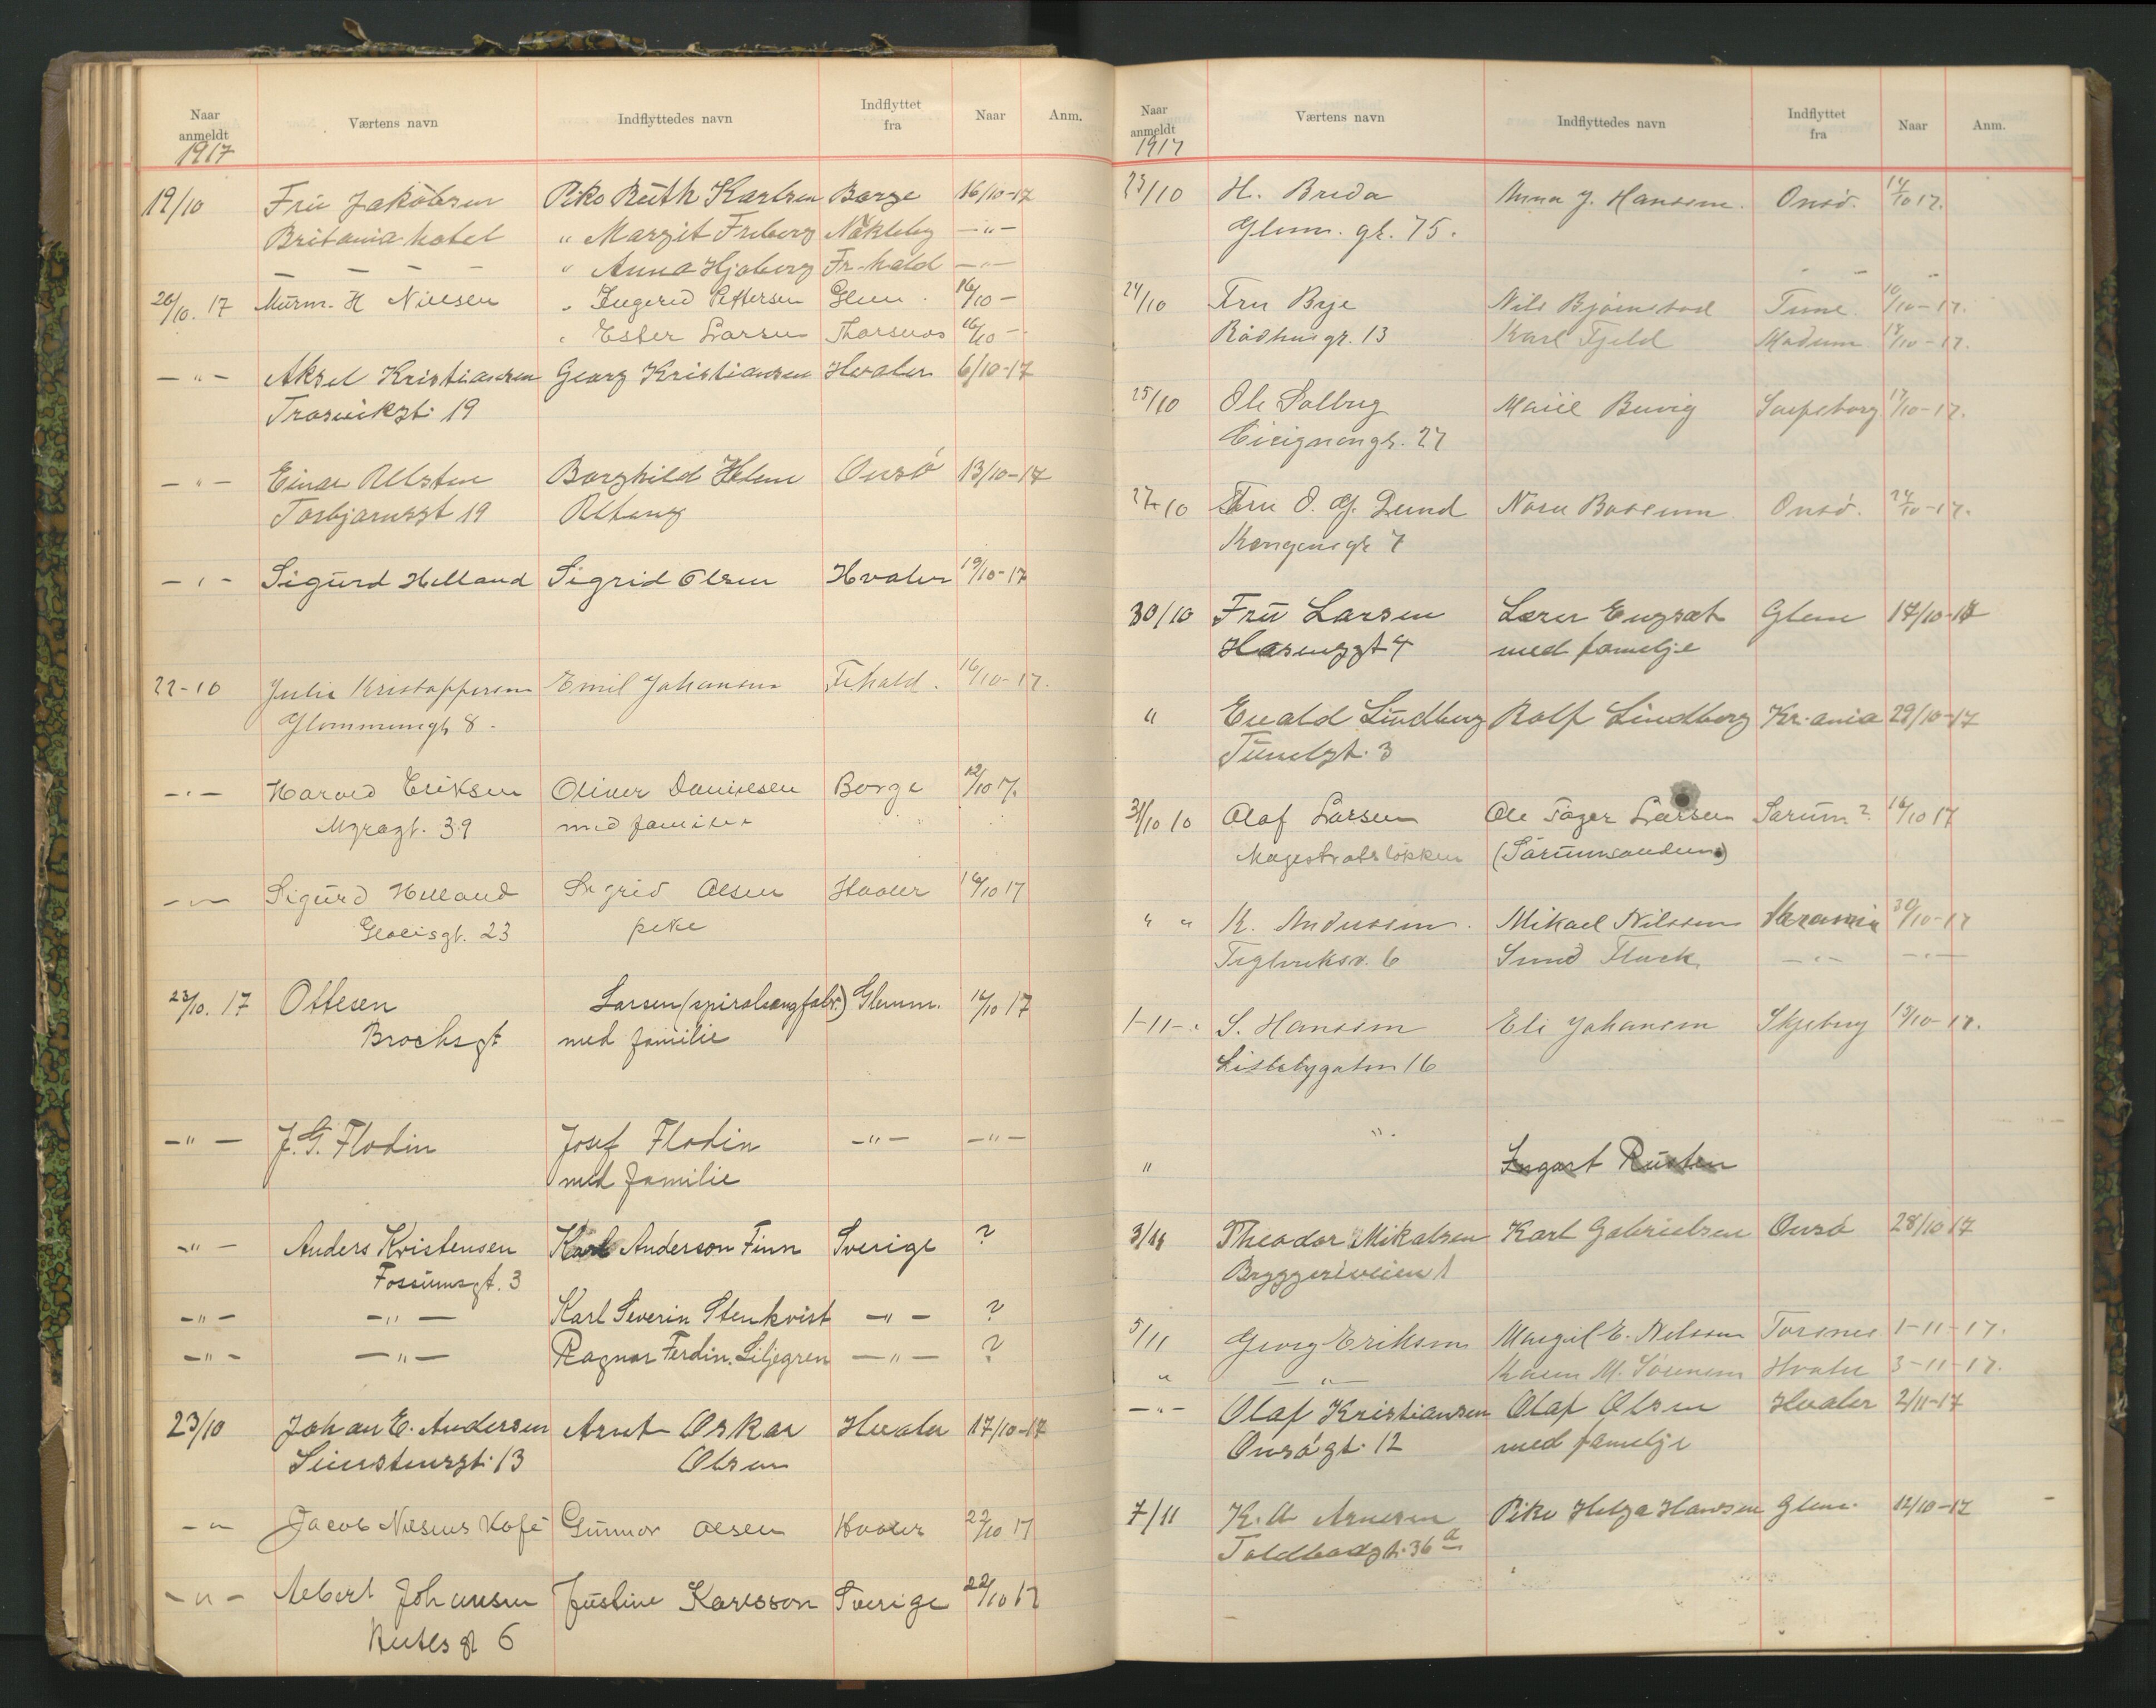 Naar anmeldt Værtens navn Indflyttedes navn Indflyttet fra Naar Anm.
1917
19/10 Frü Jakobsen Pike Rüth Karlsen Borge 16/10-17
Britania hotel " Margit Freberg Nökleby - " -
- - - - " Anna Hjoberg Fr.hald - " -
20/10. 17 Mürm. H Nielsen " Ingerid Pettersen Glem. 16/10 -
" Ester Larsen Thorsnes 16/10 -
- " - Aksel Kristiansen Georg Kristiansen Hvaler 6/10-17
Trosvikgt. 19
- " - Einar Alsten Borghild Helene Onsö 13/10-17
Torbjörnsgt 19
- " - Sigürd Helland Sigrid Olsen Hvaler 19/10-17
22-10 Julie Kristoffersen Emil Johansen Fr.hald. 16/10-17.
Glommengt 8.
- " - Harald Eriksen Oliver Danielsen Borge 12/10 17.
Myragt. 39 med familie
- " - Sigürd Helland Sigrid Olsen Hvaler 16/10 17
Glolisgt. 23 pike
23/10. 17 Ottesen Larsen (spiralsengfabr.) Glemm. 16/10 17
Brochsgt med familie
- " - J. G. Flodin Josef Flodin - " - - " -
med familie
- " - Anders Kristensen Karl Anderson Finn Sverige ?
Fossümsgt. 3
- " - - " - Karl Severin Stenkvist - " - ?
- " - - " - Ragnar Ferdin. Liljegren - " - ?
23/10 Johan E. Andersen Arnt Oskar Hvaler 17/10-17
13 Olsen
- " - Jacob Nilsens Kafé Günnor Olsen Hvaler 22/10 17
- " - Albert Johansen Jüstine Karlsson Sverige 22/10 17
gt 6
Naar anmeldt Værtens navn Indflyttedes navn Indflyttet fra Naar Anm.
1917
23/10 H. Breda Anna J. Hansen. Onsö. 14/10 17.
Glem. gt. 75.
24/10 Fru Brje Nils Bjørnstad Tune 10/10-17.
Rådhusgt. 13 Karl Fjeld Modum 18/10-17.
25/10 Ole Solbrg Marie Buvig Sarpsborg 17/10-17.
27
27/10 Fru O. G. Lund Nora Onsö. 24/10-17.
Kongensgt 7
30/10 Frü Larsen Lærer Engsæt Glem 17/10-17
4 med familje
" Evald Lindberg Rolf Lindberg Kr.ania 29/10-17
Tünelgt. 3
31/10 10 Olaf Larsen Ole Larsen Sørüm ? 16/10 17
Magestratsløkken (Sørümsanden)
" " K. Andersen. Mikael Nilssen Kr.ania 30/10-17
Teglverksv. 6 - " - - " -
1-11- " S. Hansen Eli Johansen Skjeberg 15/10-17.
Lislebygaten 16
" " Rüsten
3/11 Theodor Mikalsen Karl Gabrielsen Onsö 28/10 17
Bryggeriveien 1
5/11 Georg Eriksen Margit E. Nilssen Torsnes 1-11-17.
" - " - Karen M. Sörensen Hvaler 3-11-17.
- " - Olaf Kristiansen Olaf Olsen Hvaler 2/11-17
Onsögt. 12 med familje
7/11 K. A Arnesen Pike Helga Hansen Glem. 12/10-17
Toldbodgt. 36 a